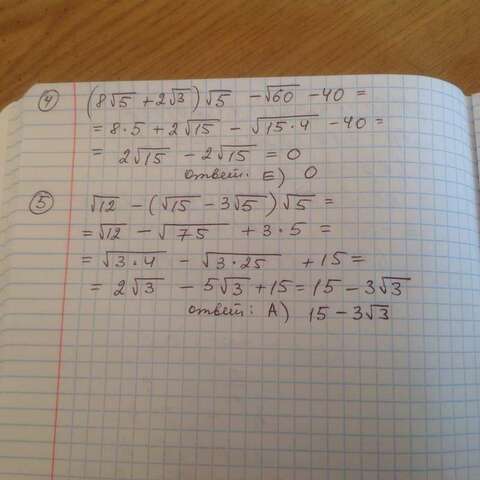 4 (8√5 + 2√3)√5 - √60 - 40 =
= 8·5 + 2√15 - √15·4 - 40 =
= 2√15 - 2√15 = 0
ответ: E) 0
5 √12 - (√15 - 3√5)√5 =
= √12 - √75 + 3·5 =
= √3·4 - √3·25 + 15 =
= 2√3 - 5√3 + 15 = 15 - 3√3
ответ: A) 15 - 3√3